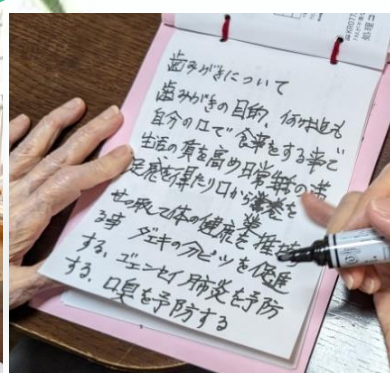 歯みがきについて
歯みがきの目的、何時迄も
自分の口で食事をする事で
生活の質を高め日常の満
足感を得たり口から栄養を
せっ取して体の健康を維持
る事 ダエキの分ピツを促進
する、ゴエンセイ肺炎を予防
する、口臭を予防する